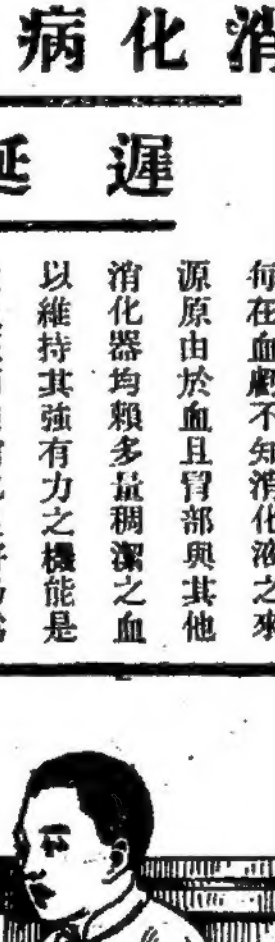 消化病
遲延
在血虧不知消化液之來
源原由於血且胃部與其他
消化器均賴多量稠潔之血
以維持其強有力之機能是